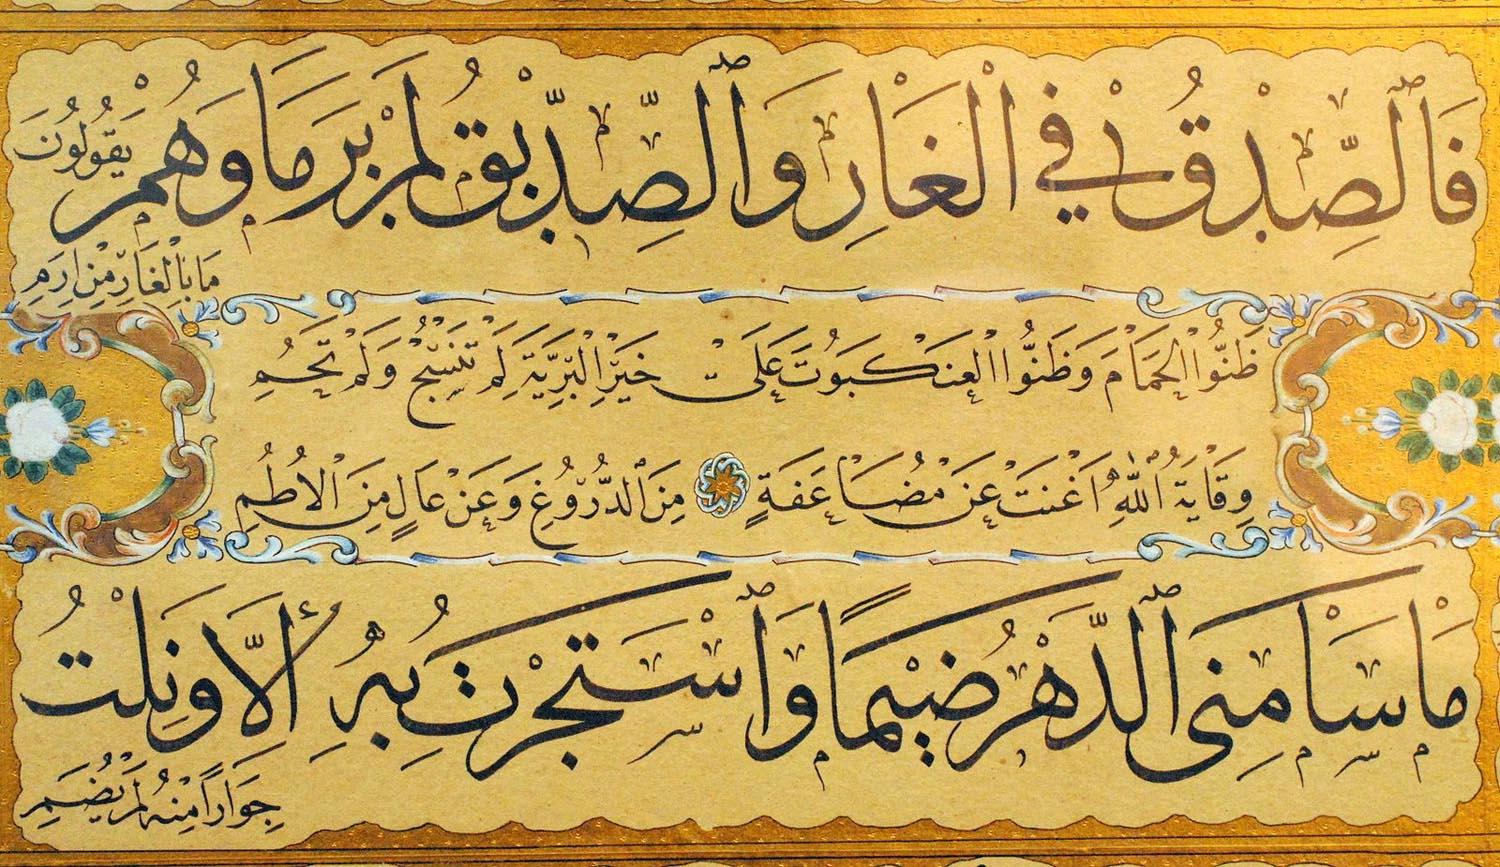 فَٱلصِّدْقُ فِي الْغَارِ وَٱلصِّدِّيقُ لَمْ يَرَمَا وَهُمْ يَقُولُونَ
مَا بِالْغَارِ مِنْ اَرِمِ
ظَنُّوا الْحَمَامَ وَظَنُّوا الْعَنْكَبُوتَ عَلَى خَيْرِ الْبَرِيَّةِ لَمْ تَنْسُجْ وَلَمْ تَحُمِ
وِقَايَةُ اللّٰهِ اَغْنَتْ عَنْ مُضَاعَفَةٍ مِنَ ٱلدُّرُوعِ وَعَنْ عَالٍ مِنَ الْاُطُمِ
مَا سَامَنِى ٱلدَّهْرُ ضَيْمًا وَٱسْتَجَرْتُ بِهِ اِلَّا وَنِلْتُ
جِوَارًا مِنْهُ لَمْ يُضَمِ